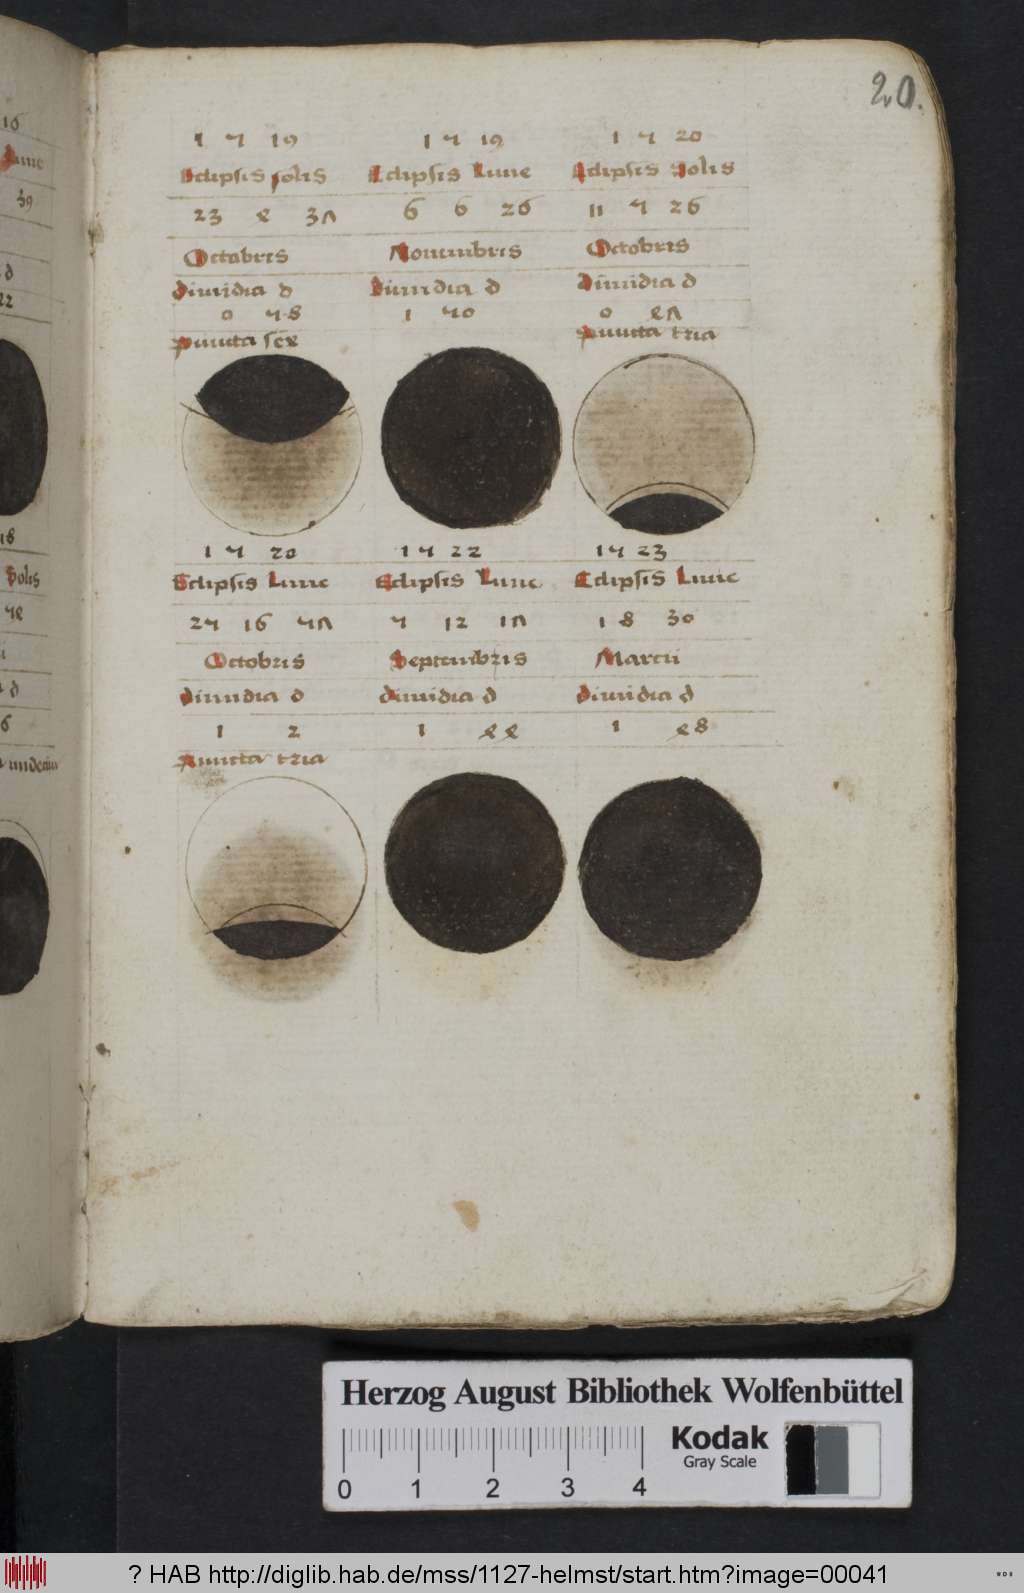 16
Lune
39
d
22
18
Solis
54
d
6
undecim
20.
1 5 19 1 5 19 1 5 20
Eclipsis solis Eclipsis Lune Eclipsis Solis
23 4 37 6 6 26 11 5 26
Octobris Nouembris Octobris
Dimidia d Dimidia d Dimidia d
0 58 1 50 0 47
Puncta sex Puncta tria
1 5 20 1 5 22 1 5 23
Eclipsis Lune Eclipsis Lune Eclipsis Lune
25 16 57 5 12 17 1 8 30
Octobris Septembris Marcii
Dimidia d dimidia d Dimidia d
1 2 1 44 1 48
Puncta tria
Herzog August Bibliothek Wolfenbüttel
Kodak
Gray Scale
0 1 2 3 4
? HAB http://diglib.hab.de/mss/1127-helmst/start.htm?image=00041